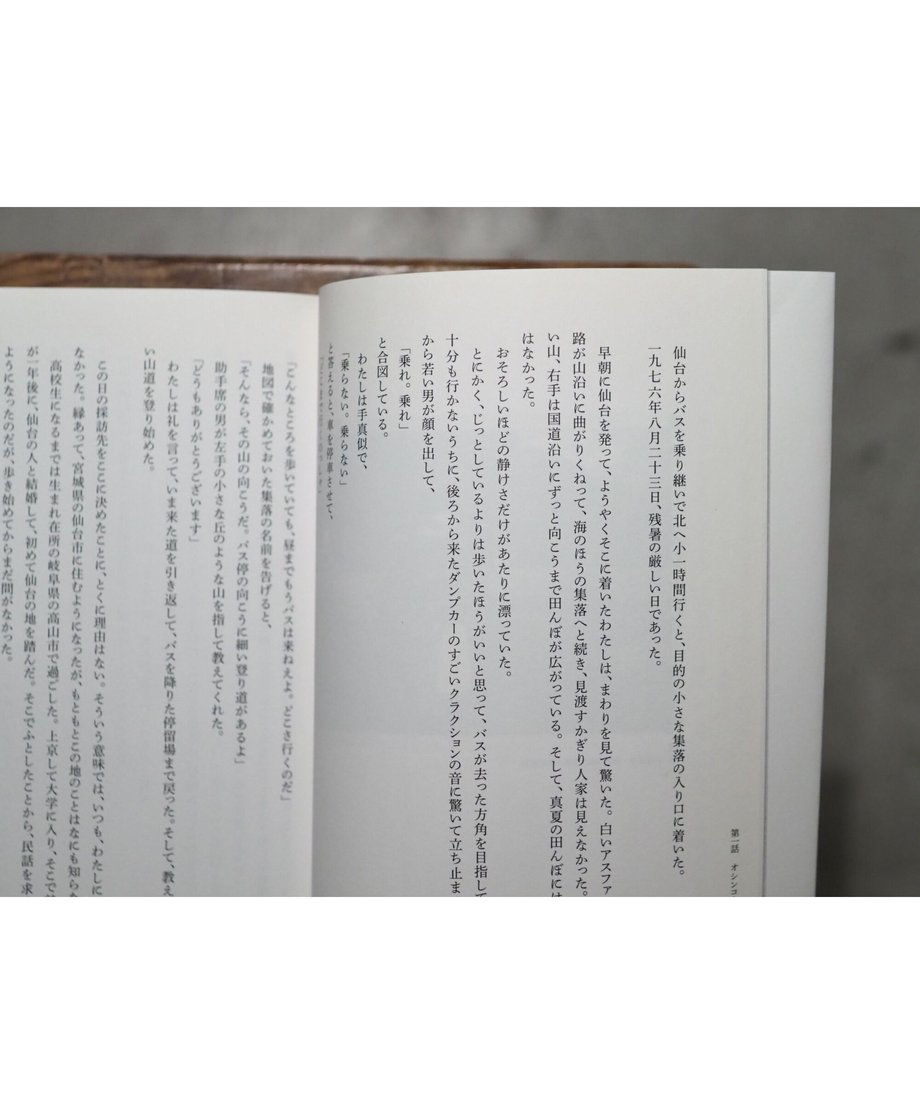 仙台からバスを乗り継いで北へ小一時間行くと、目的の小さな集落の入り口に着いた。
一九七六年八月二十三日、残暑の厳しい日であった。
早朝に仙台を発って、ようやくそこに着いたわたしは、まわりを見て驚いた。白いアスファ
路が山沿いに曲がりくねって、海のほうの集落へと続き、見渡すかぎり人家は見えなかった。
い山、右手は国道沿いにずっと向こうまで田んぼが広がっている。そして、真夏の田んぼには
はなかった。
おそろしいほどの静けさだけがあたりに漂っていた。
とにかく、じっとしているよりは歩いたほうがいいと思って、バスが去った方角を目指して
十分も行かないうちに、後ろから来たダンプカーのすごいクラクションの音に驚いて立ち止ま
から若い男が顔を出して、
「乗れ。乗れ」
と合図している。
わたしは手真似で、
「乗らない。乗らない」
と答えると、車を停車させて、
第一話 オシンコ
「こんなところを歩いていても、昼までもうバスは来ねえよ。どこさ行くのだ」
地図で確かめておいた集落の名前を告げると、
「そんなら、その山の向こうだ。バス停の向こうに細い登り道があるよ」
助手席の男が左手の小さな丘のような山を指して教えてくれた。
「どうもありがとうございます」
わたしは礼を言って、いま来た道を引き返して、バスを降りた停留場まで戻った。そして、教え
い山道を登り始めた。
この日の採訪先をここに決めたことに、とくに理由はない。そういう意味では、いつも、わたしに
なかった。縁あって、宮城県の仙台市に住むようになったが、もともとこの地のことはなにも知らな
高校生になるまでは生まれ在所の岐阜県の高山市で過ごした。上京して大学に入り、そこで
が一年後に、仙台の人と結婚して、初めて仙台の地を踏んだ。そこでふとしたことから、民話を求
ようになったのだが、歩き始めてからまだ間がなかった。